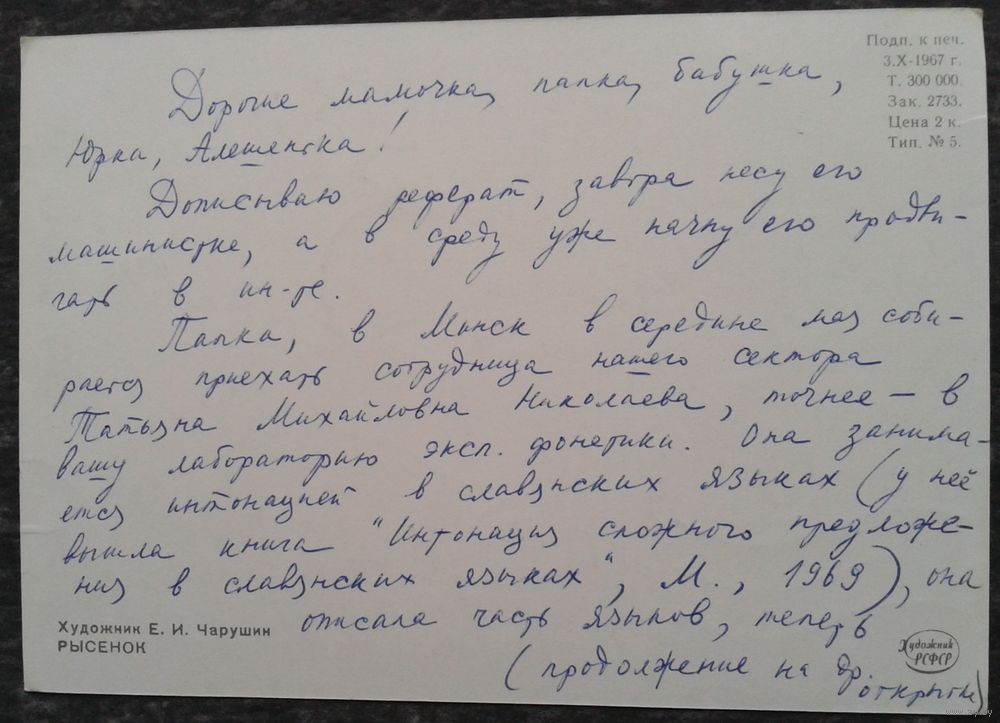 Подп. к печ.
3.X-1967 г.
Т. 300 000.
Зак. 2733.
Цена 2 к.
Тип. № 5.
Дорогие мамочка, папка, бабушка,
Юрка, Алешенька!
Дописываю реферат, завтра несу его
машинистке, а в среду уже начну его продви-
гать в ин-те.
Папка, в Минск в середине мая соби-
рается приехать сотрудница нашего сектора
Татьяна Михайловна Николаева, точнее – в
вашу лабораторию эксп. фонетики. Она занима-
ется интонацией в славянских языках (у неё
вышла книга "Интонация сложного предложе-
ния в славянских языках", М., 1969), она
описала часть языков, теперь
(продолжение на др.
открытке)
Художник Е. И. Чарушин
РЫСЕНОК
Художник
РСФСР